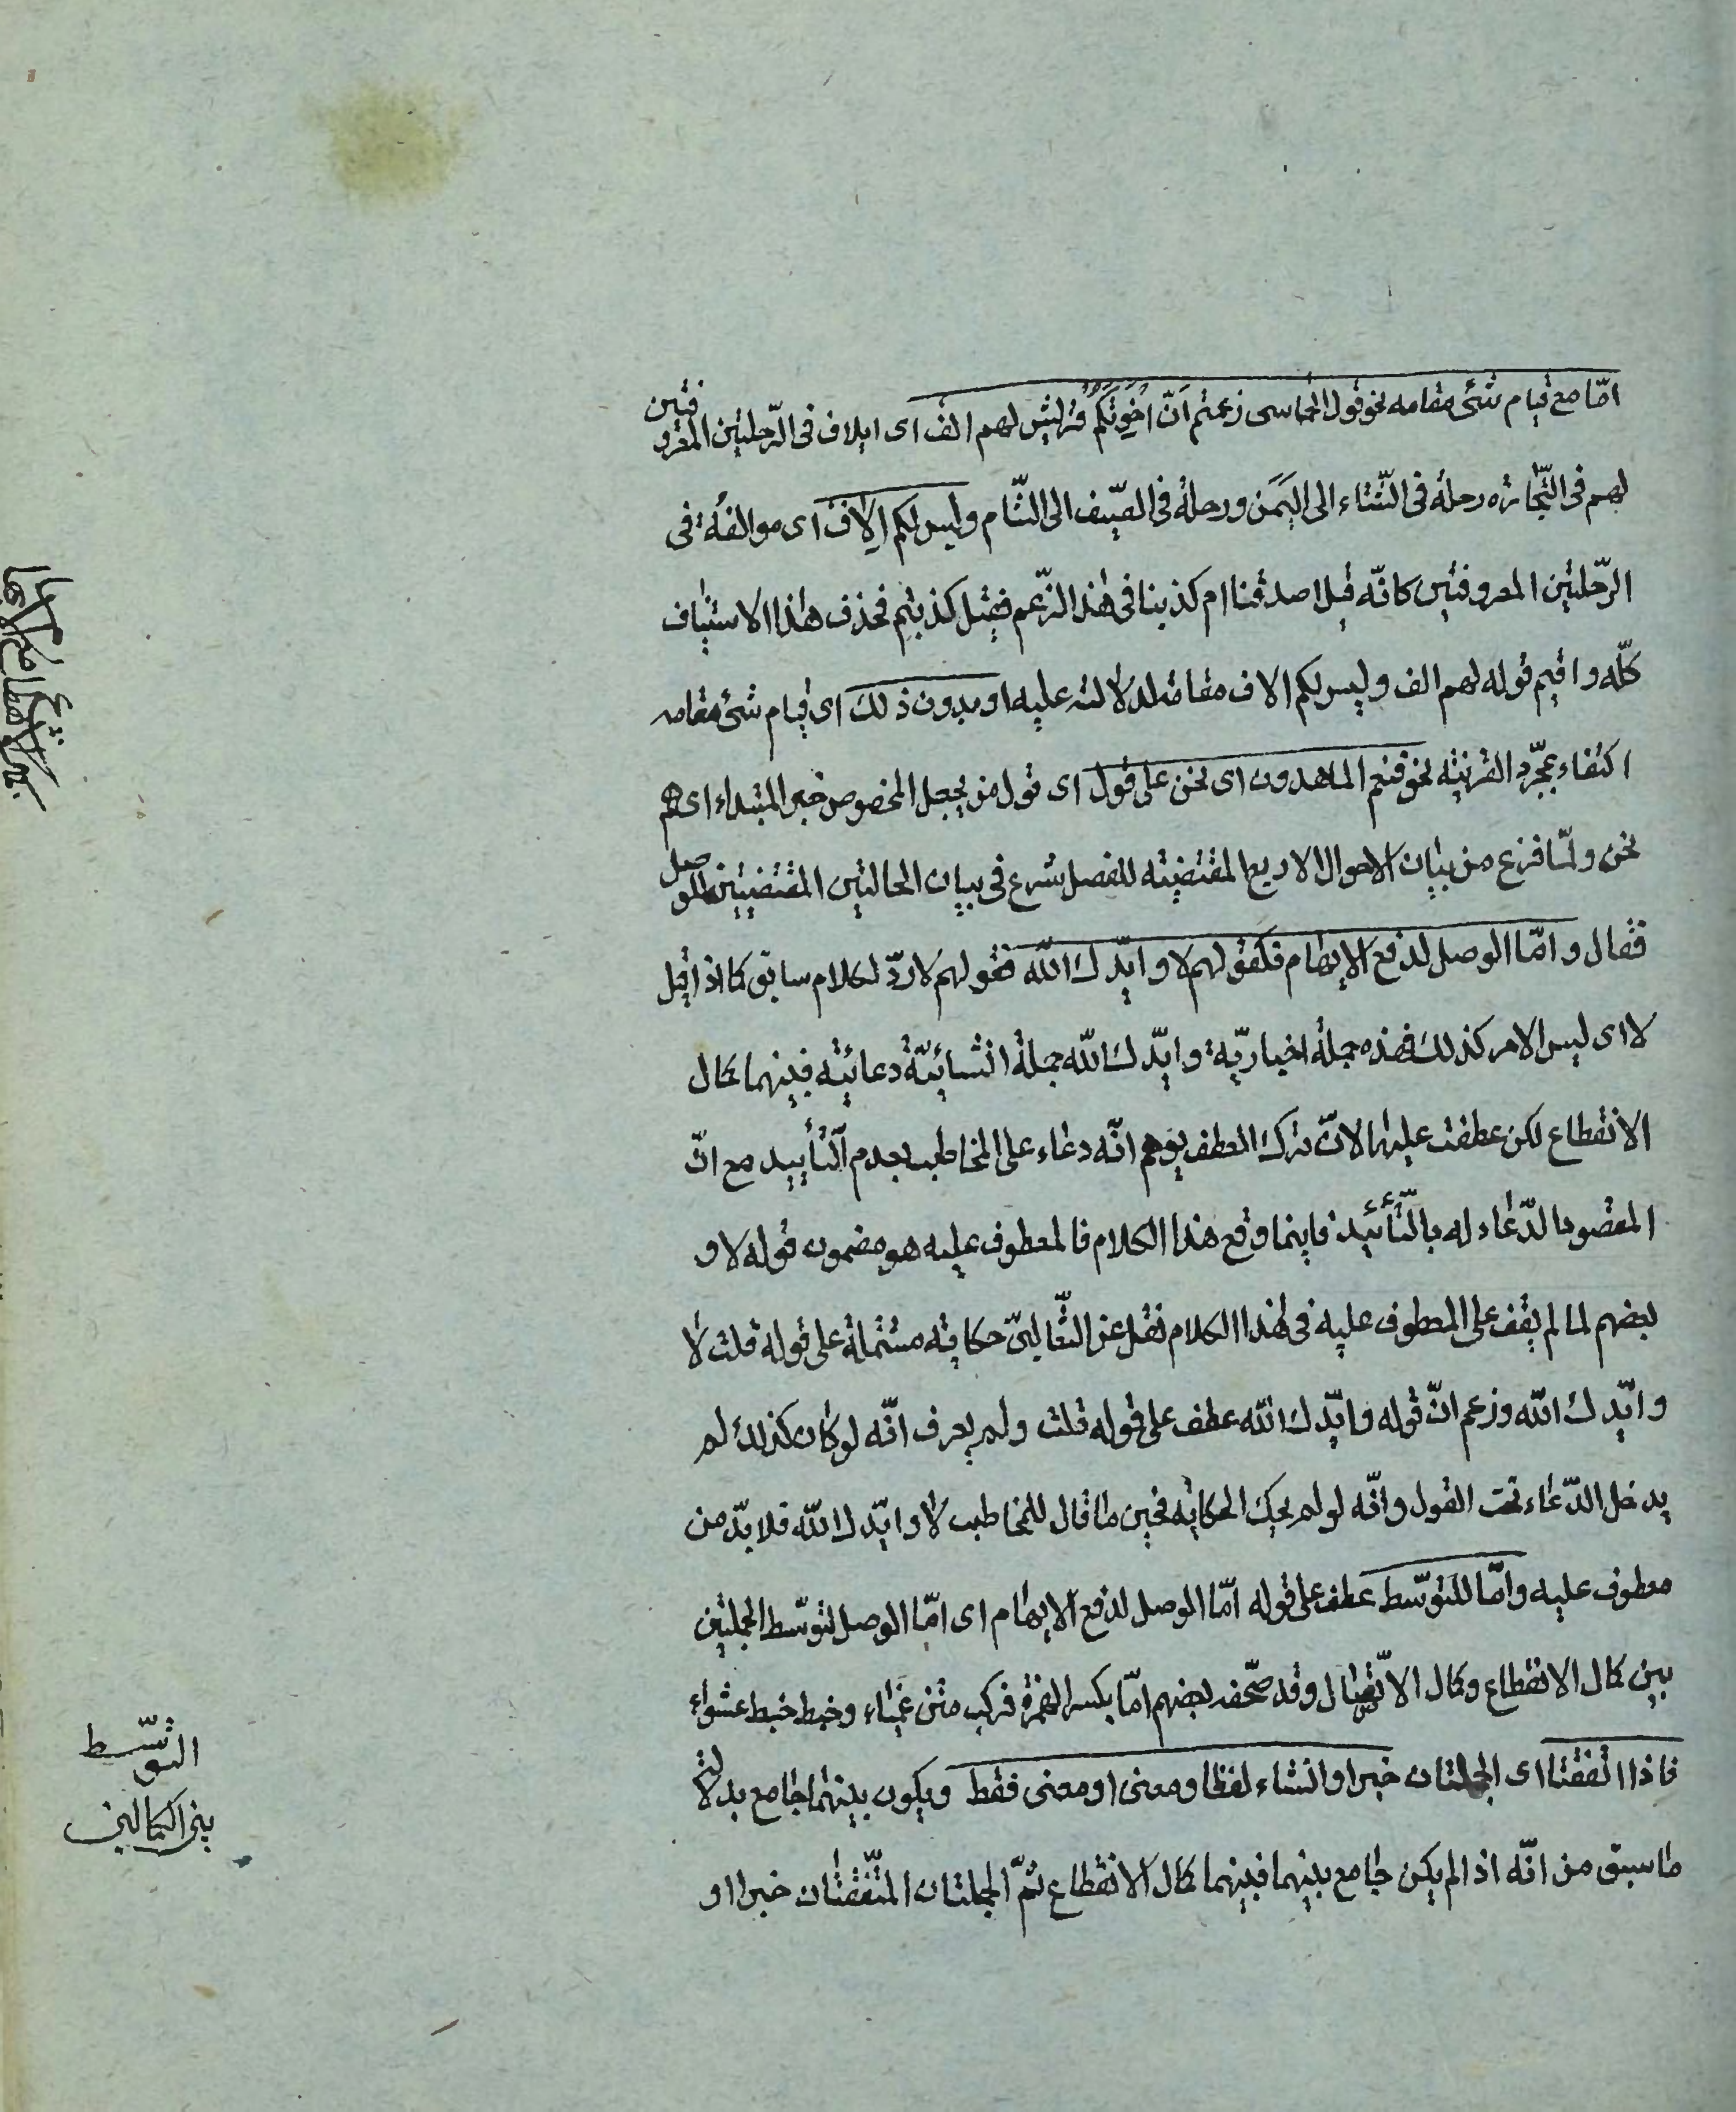 امّا مع قيام شئ مقامه نحو قول الحماسى زعمتم انّ اخوتكم قريش لهم الف اى ايلاف فى الرّحلتين المعروفتين
لهم فى التّجارة رحلة فى الشّتاء الى اليمن ورحلة فى الصّيف الى الشّام وليس لكم الاف اى موالفة فى
الرّحلتين المعروفتين كانّه قيل اصدقنا ام كذبنا فى هذا الزّعم فقيل كذبتم فحذف هذا الاستيناف
كلّه واقيم قوله لهم الف وليس لكم الاف مقامه لدلالته عليه او بدون ذلك اى قيام شئ مقامه
اكتفاء بمجرّد القرينة نحو فنعم الماهدون اى نحن على قول اى قول من يجعل المخصوص خبر المبتداء اى هم
نحن ولمّا فرغ من بيان الاحوال الاربع المقتضية للفصل شرع فى بيان الحالتين المقتضيتين للوصل
فقال وامّا الوصل لدفع الايهام فكقولهم لا وايّدك اللّه فقولهم لا ردّ لكلام سابق كما اذا قيل
لا اى ليس الامر كذلك فهذه جملة اخباريّة وايّدك اللّه جملة انشائيّة دعائيّة فبينهما كمال
الانقطاع لكن عطفت عليها لانّ ترك العطف يوهم انّه دعاء على المخاطب بعدم التّأييد مع انّ
المقصود الدّعاء له بالتّأييد فاينما وقع هذا الكلام فالمعطوف عليه هو مضمون قوله لا و
بعضهم لما لم يقف على المعطوف عليه فى هذا الكلام نقل عن الثّعالبىّ حكاية مشتملة على قوله قلت لا
وايّدك اللّه وزعم انّ قوله وايّدك اللّه عطف على قوله قلت ولم يعرف انّه لو كان كذلك لم
يدخل الدّعاء تحت القول وانّه لو لم يحك الحكاية فحين ما قال للمخاطب لا وايّدك اللّه فلا بدّ من
معطوف عليه وامّا للتوسّط عطف على قوله امّا الوصل لدفع الايهام اى امّا الوصل لتوسّط الجملتين
بين كمال الانقطاع وكمال الاتّصال وقد صحّفه بعضهم امّا بكسر الهمزة فركب متن عمياء وخبط خبط عشواء
فاذا اتفقتا اى الجملتان خبرا وانشاء لفظا ومعنى او معنى فقط ويكون بينهما جامع بدلالة
ما سبق من انّه اذا لم يكن جامع بينهما فبينهما كمال الانقطاع ثمّ الجملتان المتّفقتان خبرا او
التوسّط
بين الكمالين